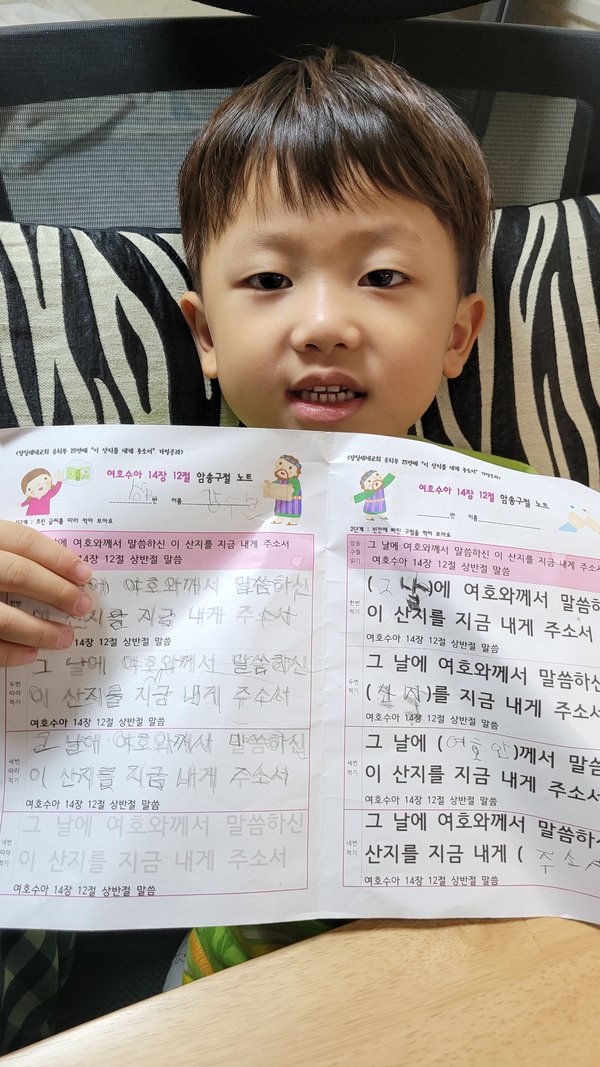 유치부 25번째 "이 산지를 내게 주소서" 가정공과>
여호수아 14장 12절 암송구절 노트
반 이름
1단계 : 흐린 글씨를 따라 적어 보아요
날에 여호와께서 말씀하신 이 산지를 지금 내게 주소서
14장 12절 상반절 말씀
에 여호와께서 말씀하신
산지를 지금 내게 주소서
14장 12절 상반절 말씀
두번 따라 적기
그 날에 여호와께서 말씀하신
이 산지를 지금 내게 주소서
여호수아 14장 12절 상반절 말씀
세번 따라 적기
그 날에 여호와께서 말씀하신
이 산지를 지금 내게 주소서
여호수아 14장 12절 상반절 말씀
네번 따라 적기
그 날에 여호와께서 말씀하신
이 산지를 지금 내게 주소서
여호수아 14장 12절 상반절 말씀
유치부 25번째 "이 산지를 내게 주소서" 가정공과>
여호수아 14장 12절 암송구절 노트
반 이름
2단계 : 빈칸에 빠진 구절을 적어 보아요
암송 구절 읽기
그 날에 여호와께서 말씀하신 이 산지를 지금 내게 주소서
여호수아 14장 12절 상반절 말씀
한번 적기
(그 날)에 여호와께서 말씀하
이 산지를 지금 내게 주소서
여호수아 14장 12절 상반절 말씀
두번 적기
그 날에 여호와께서 말씀하신
(산지)를 지금 내게 주소서
여호수아 14장 12절 상반절 말씀
세번 적기
그 날에 (여호와)께서 말씀
이 산지를 지금 내게 주소서
여호수아 14장 12절 상반절 말씀
네번 적기
그 날에 여호와께서 말씀하
산지를 지금 내게 ( 주소서
여호수아 14장 12절 상반절 말씀